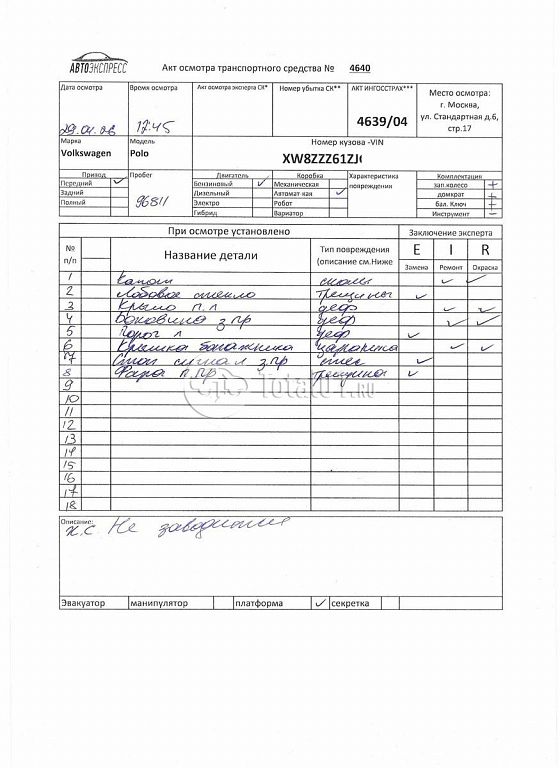 АВТОЭКСПРЕСС
Акт осмотра транспортного средства № 4640
Дата осмотра Время осмотра Акт осмотра эксперта СК* Номер убытка СК** АКТ ИНГОССТРАХ*** Место осмотра:
г. Москва,
ул. Стандартная д.6,
стр.17
12:45 4639/04
Марка Модель Номер кузова -VIN
Volkswagen Polo XW8ZZZ61ZJ
Привод Пробег Двигатель Коробка Характеристика повреждения Комплектация
Передний ✓ Бензиновый ✓ Механическая зап.колесо +
Задний 96811 Дизельный Автомат кая ✓ домкрат +
Полный Электро Робот бал. Ключ +
Гибрид Вариатор Инструмент -
При осмотре установлено Заключение эксперта
№ п/п Название детали Тип повреждения (описание см.Ниже E I R
Замена Ремонт Окраска
1 Капот сколы ✓ ✓
2 Лобовое стекло трещины ✓
3 Крыло п.л деф ✓ ✓
4 Боковина з пр деф ✓ ✓
5 Порог л деф ✓
6 Крышка багажника царапина ✓ ✓
7 Стоп сигнал з.пр ✓
8 Фара п.пр трещина ✓
9
10
11
12
13
14
15
16
17
18
Total01.ru
Описание:
Н.С Не заводится
Эвакуатор манипулятор платформа ✓ секретка